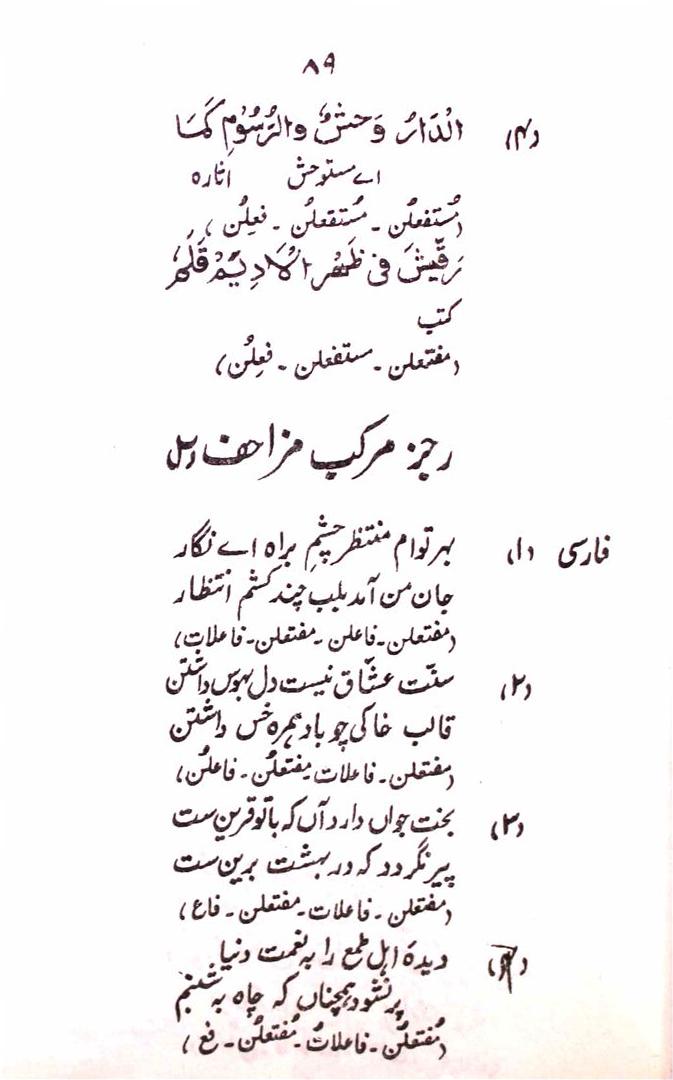 ۸۹
(۴) الْدَارُ وَحْشٌ والرُّسُوْمِ كَمَا
اے مستوحش اثارہ
(مُستفعلُن - مُستفعلُن - فَعِلُن)
رَقَّشَ فی ظَهْرِ الْاَدِیْمْ قَلَم
کتب
(مفتعلن - مستفعلن - فَعِلُن)
رجز مرکب مزاحف
فارسی (۱) بہر توام منتظر چشمِ براہ اے نگار
جان من آمد بلب چند کشم انتظار
(مفتعلن - فاعلن - مفتعلن - فاعلات)
(۲) سنّت عشّاق نیست دل بہوس داشتن
قالب خاکی چو باد ہمرہ خس داشتن
(مفتعلن - فاعلات مفتعلُن - فاعلُن)
(۳) بخت جواں دارد آں کہ باتو قرین ست
پیر نگردد کہ در بہشت برین ست
(مفتعلن - فاعلات - مفتعلن - فاع)
(۴) دیدہ اہل طمع را بہ نعمت دنیا
پر نشود ہمچناں کہ چاہ بہ شبنم
(مُفتعلُن - فاعلاتُ - مُفتعلُن - فع)